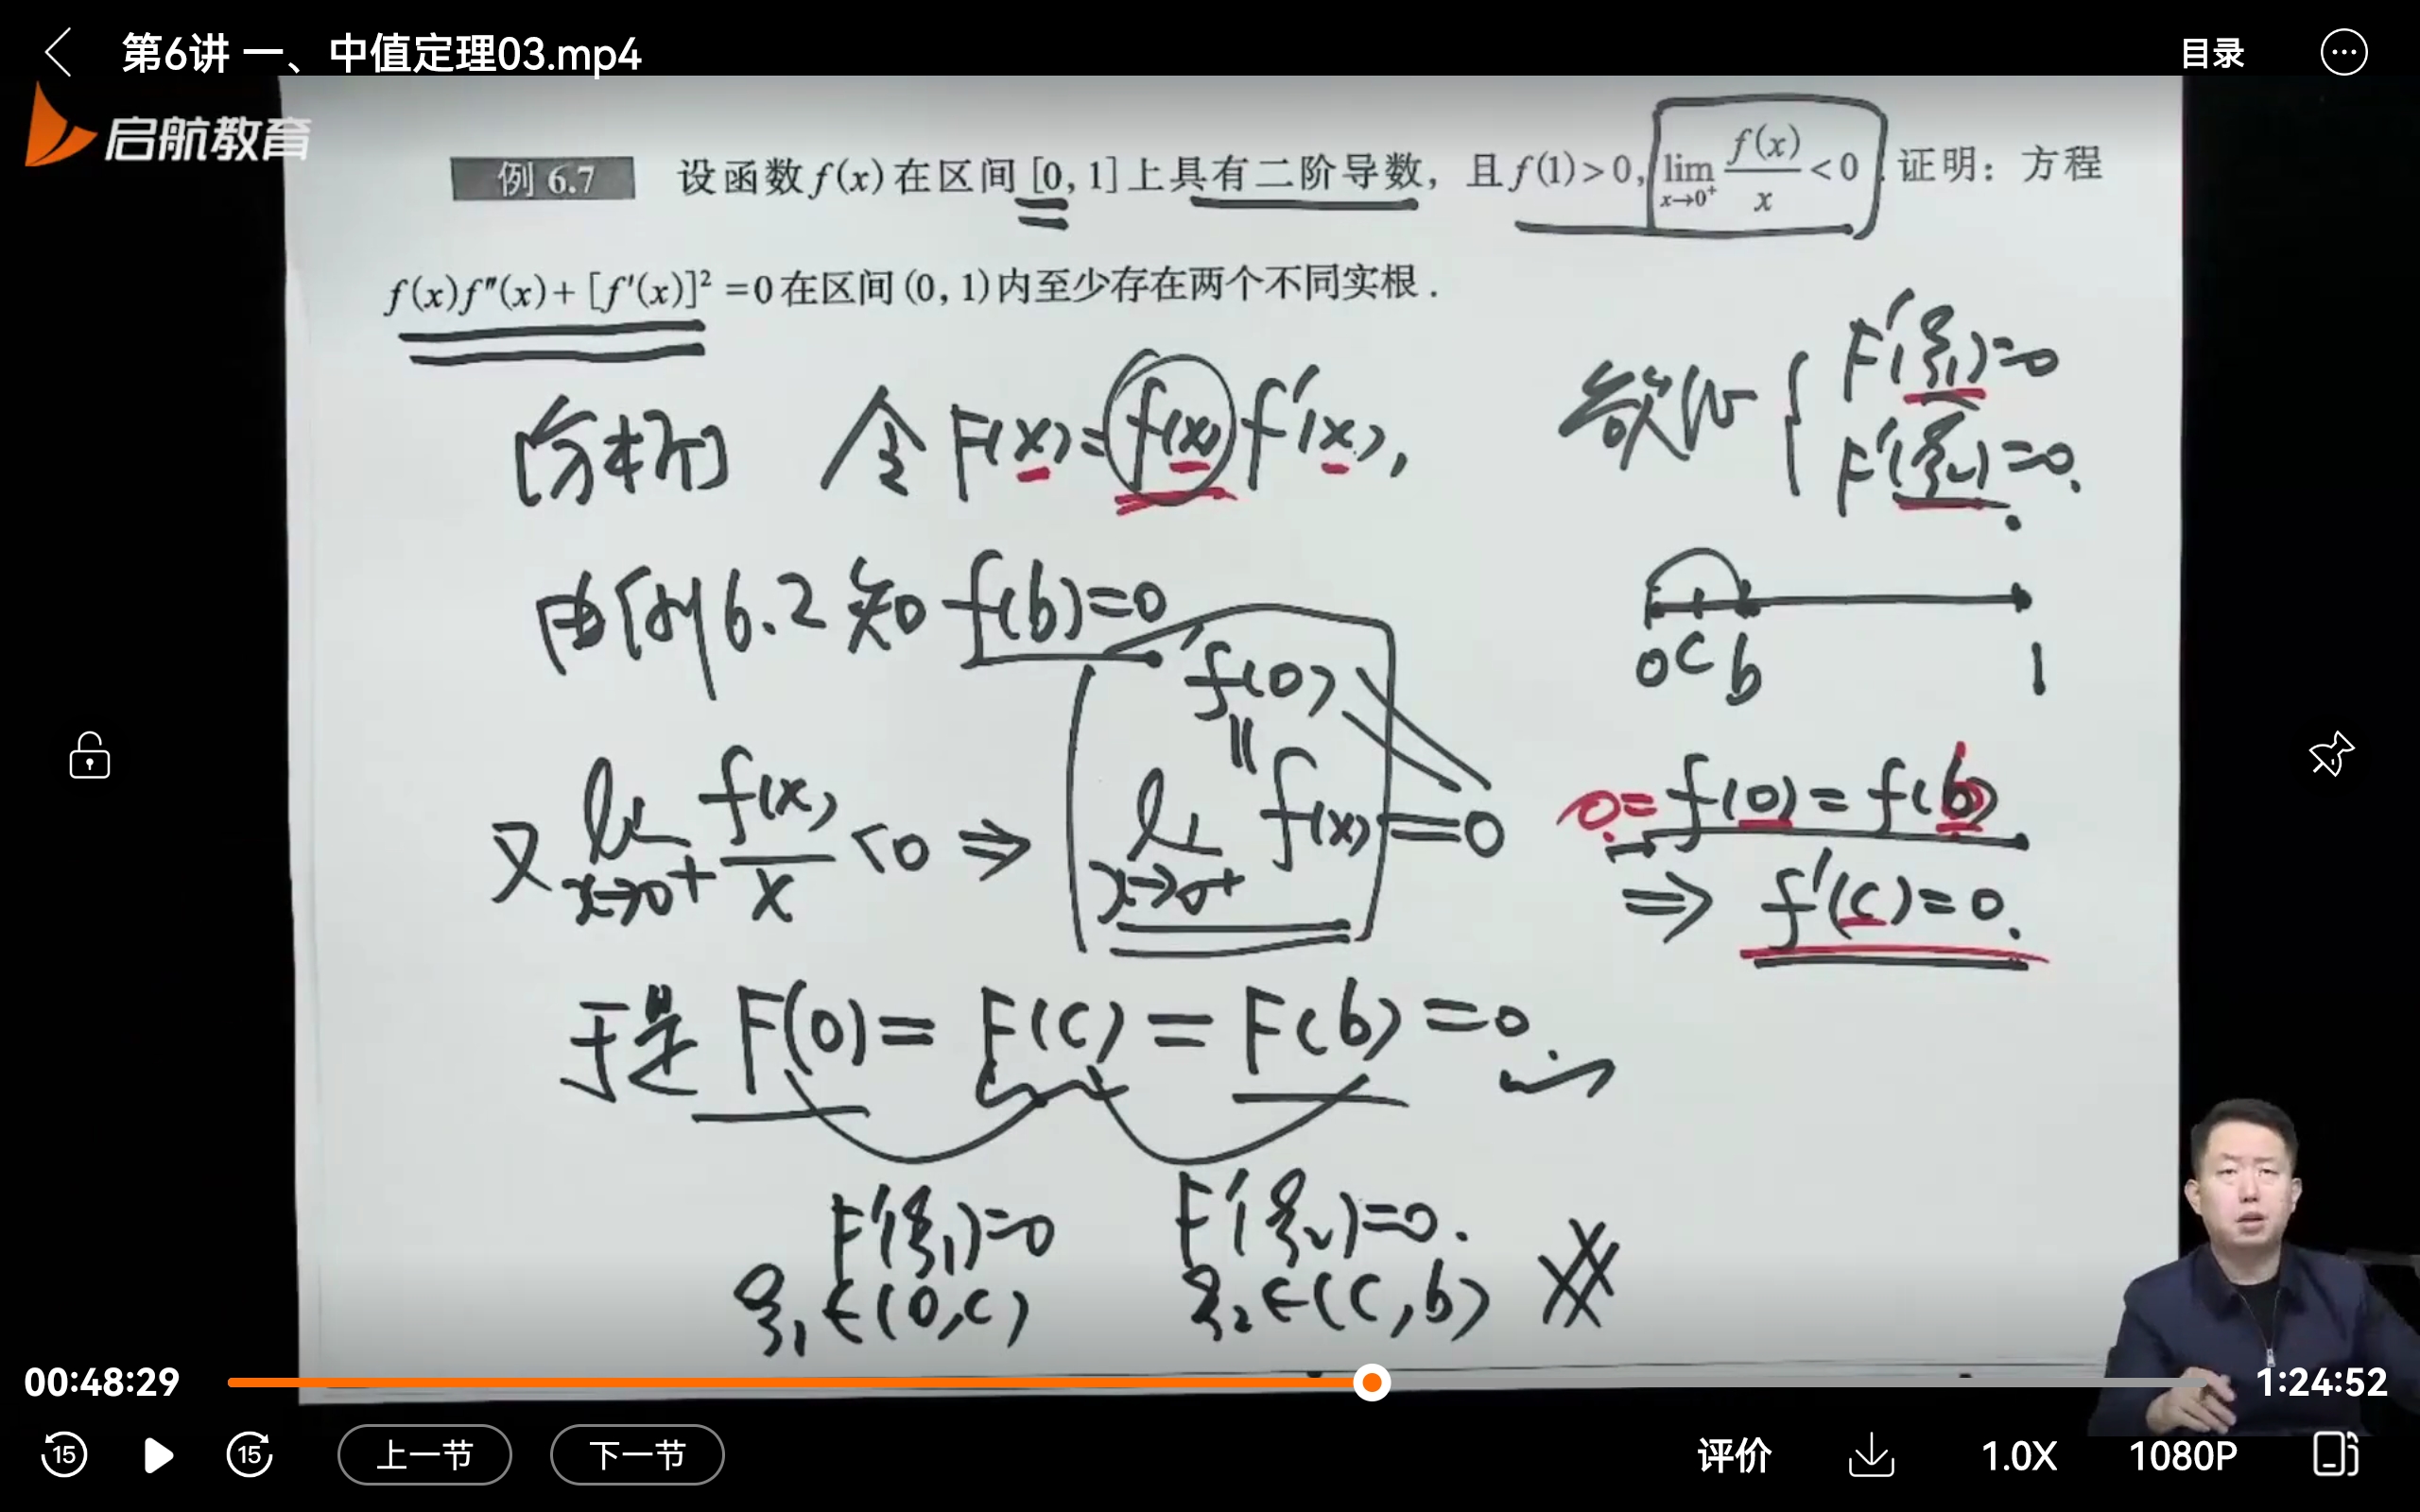 第6讲 一、中值定理03.mp4
目录
启航教育
例 6.7 设函数 f(x) 在区间 [0, 1] 上具有二阶导数, 且 f(1)>0, lim x→0⁺ f(x)/x <0. 证明: 方程
f(x)f″(x)+[f′(x)]²=0在区间(0, 1)内至少存在两个不同实根.
[分析] 令 F(x)=f(x)f′(x),
欲证 { F′(ξ₁)=0
F′(ξ₂)=0.
由例6.2知 f(b)=0
0 c b 1
f(0)
||
又 lim x→0⁺ f(x)/x <0 ⇒ lim x→0⁺ f(x)=0
0=f(0)=f(b)
⇒ f′(c)=0.
于是 F(0)=F(c)=F(b)=0.
F′(ξ₁)=0 F′(ξ₂)=0.
ξ₁∈(0,c) ξ₂∈(c,b)
00:48:29
1:24:52
15
15
上一节
下一节
评价
1.0X
1080P